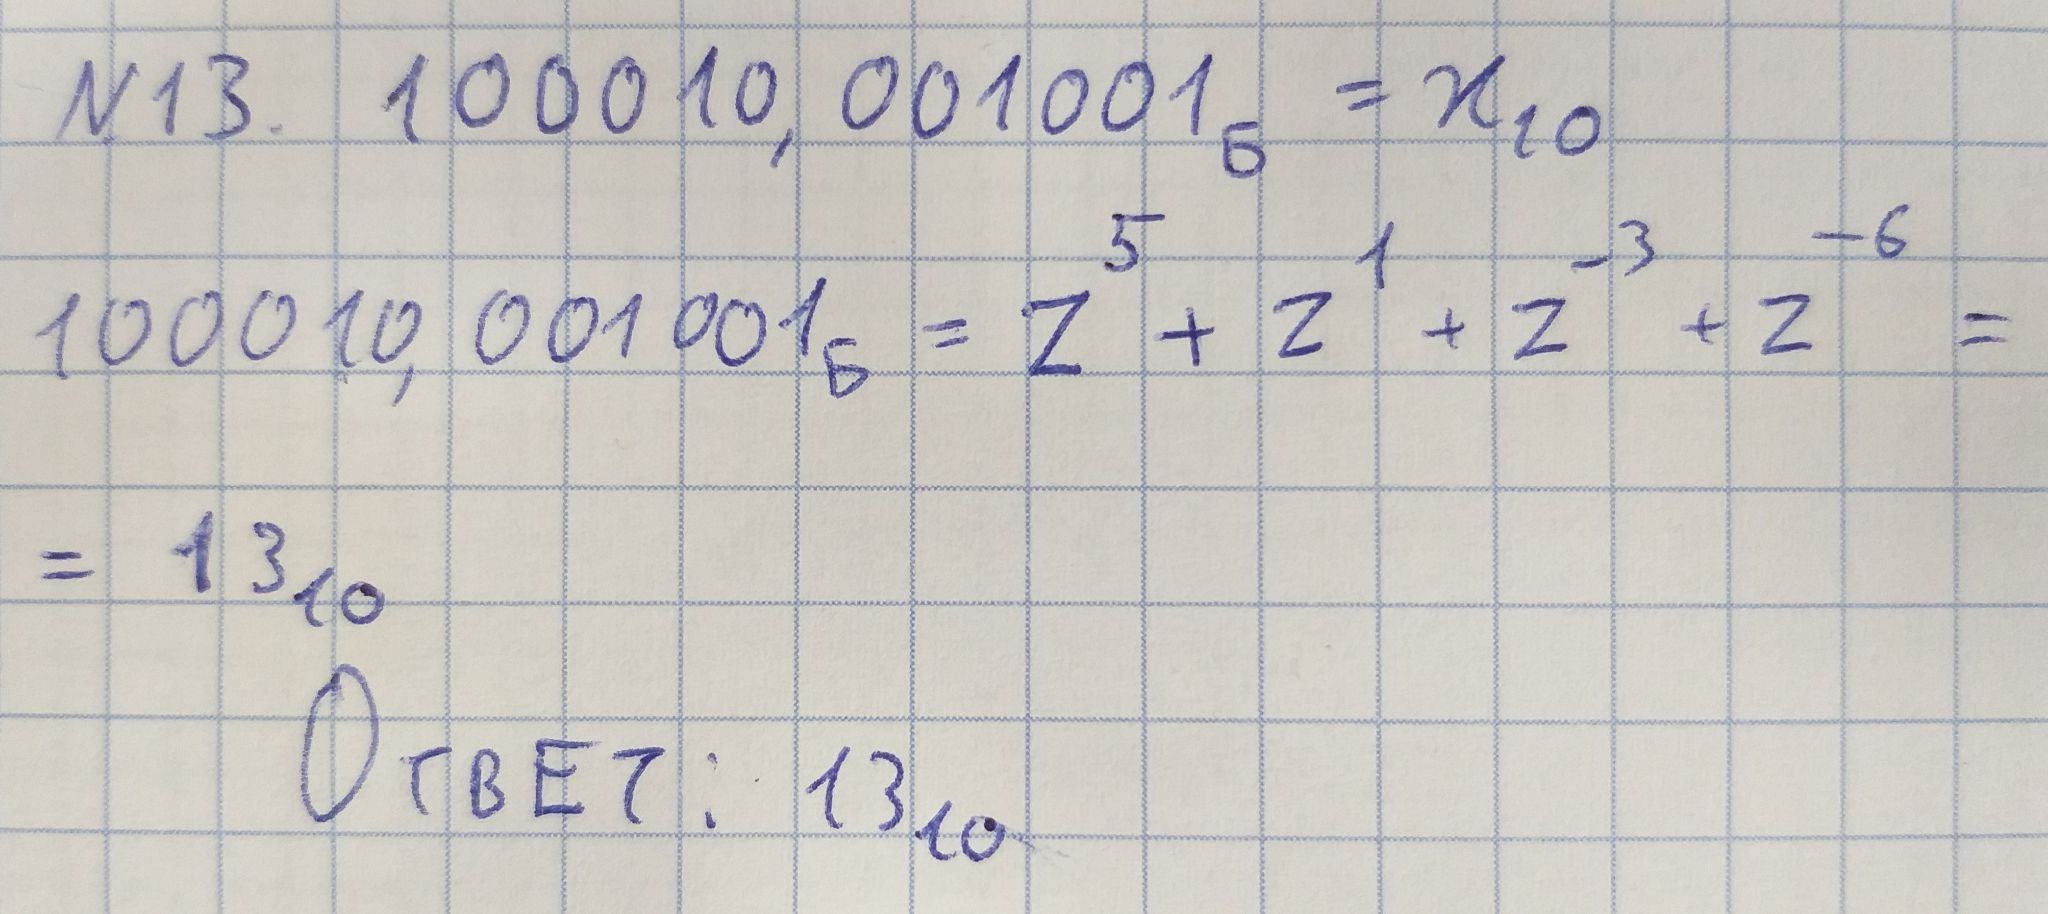 N13. 100010,001001_Б = x_10
100010,001001_Б = Z^5 + Z^1 + Z^-3 + Z^-6 =
= 13_10
Ответ: 13_10